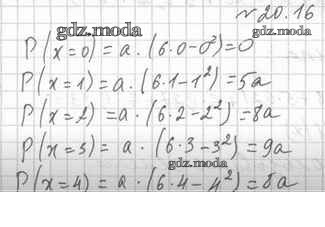 № 20.16
gdz.moda gdz.moda
P(x=0) = a·(6·0-0²)=0
P(x=1) = a·(6·1-1²) = 5a
P(x=2) = a·(6·2-2²) = 8a
P(x=3) = a·(6·3-3²) = 9a
gdz.moda
P(x=4) = a·(6·4-4²) = 8a